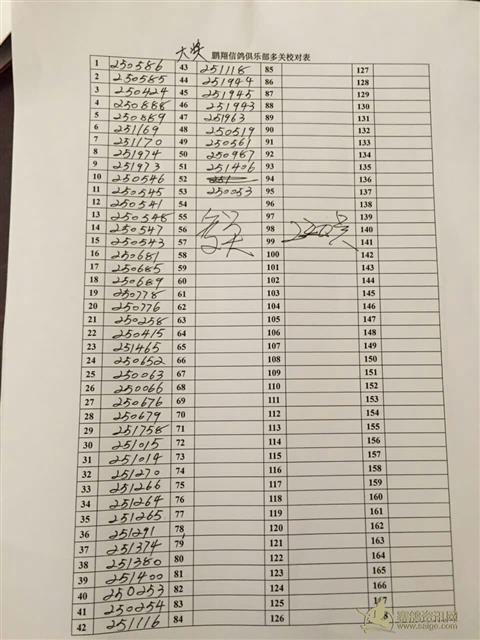 大奖 鹏翔信鸽俱乐部多关校对表
1 250586 43 251118 85 127
2 250585 44 251944 86 128
3 250424 45 251945 87 129
4 250888 46 251943 88 130
5 250889 47 251963 89 131
6 251169 48 250519 90 132
7 251170 49 250561 91 133
8 251974 50 250987 92 134
9 251973 51 251406 93 135
10 250546 52 94 136
11 250545 53 250053 95 137
12 250541 54 96 138
13 250548 55 97 139
14 250547 56 98 140
15 250543 57 99 141
16 250681 58 100 142
17 250685 59 101 143
18 250689 60 102 144
19 250778 61 103 145
20 250776 62 104 146
21 250258 63 105 147
22 250415 64 106 148
23 251465 65 107 149
24 250652 66 108 150
25 250063 67 109 151
26 250066 68 110 152
27 250676 69 111 153
28 250679 70 112 154
29 251758 71 113 155
30 251015 72 114 156
31 251014 73 115 157
32 251270 74 116 158
33 251266 75 117 159
34 251264 76 118 160
35 251265 77 119 161
36 251291 78 120 162
37 251374 79 121 163
38 251380 80 122 164
39 251400 81 123 165
40 250253 82 124 166
41 250254 83 125 167
42 251116 84 126
赛鸽资讯网
www.saige.com